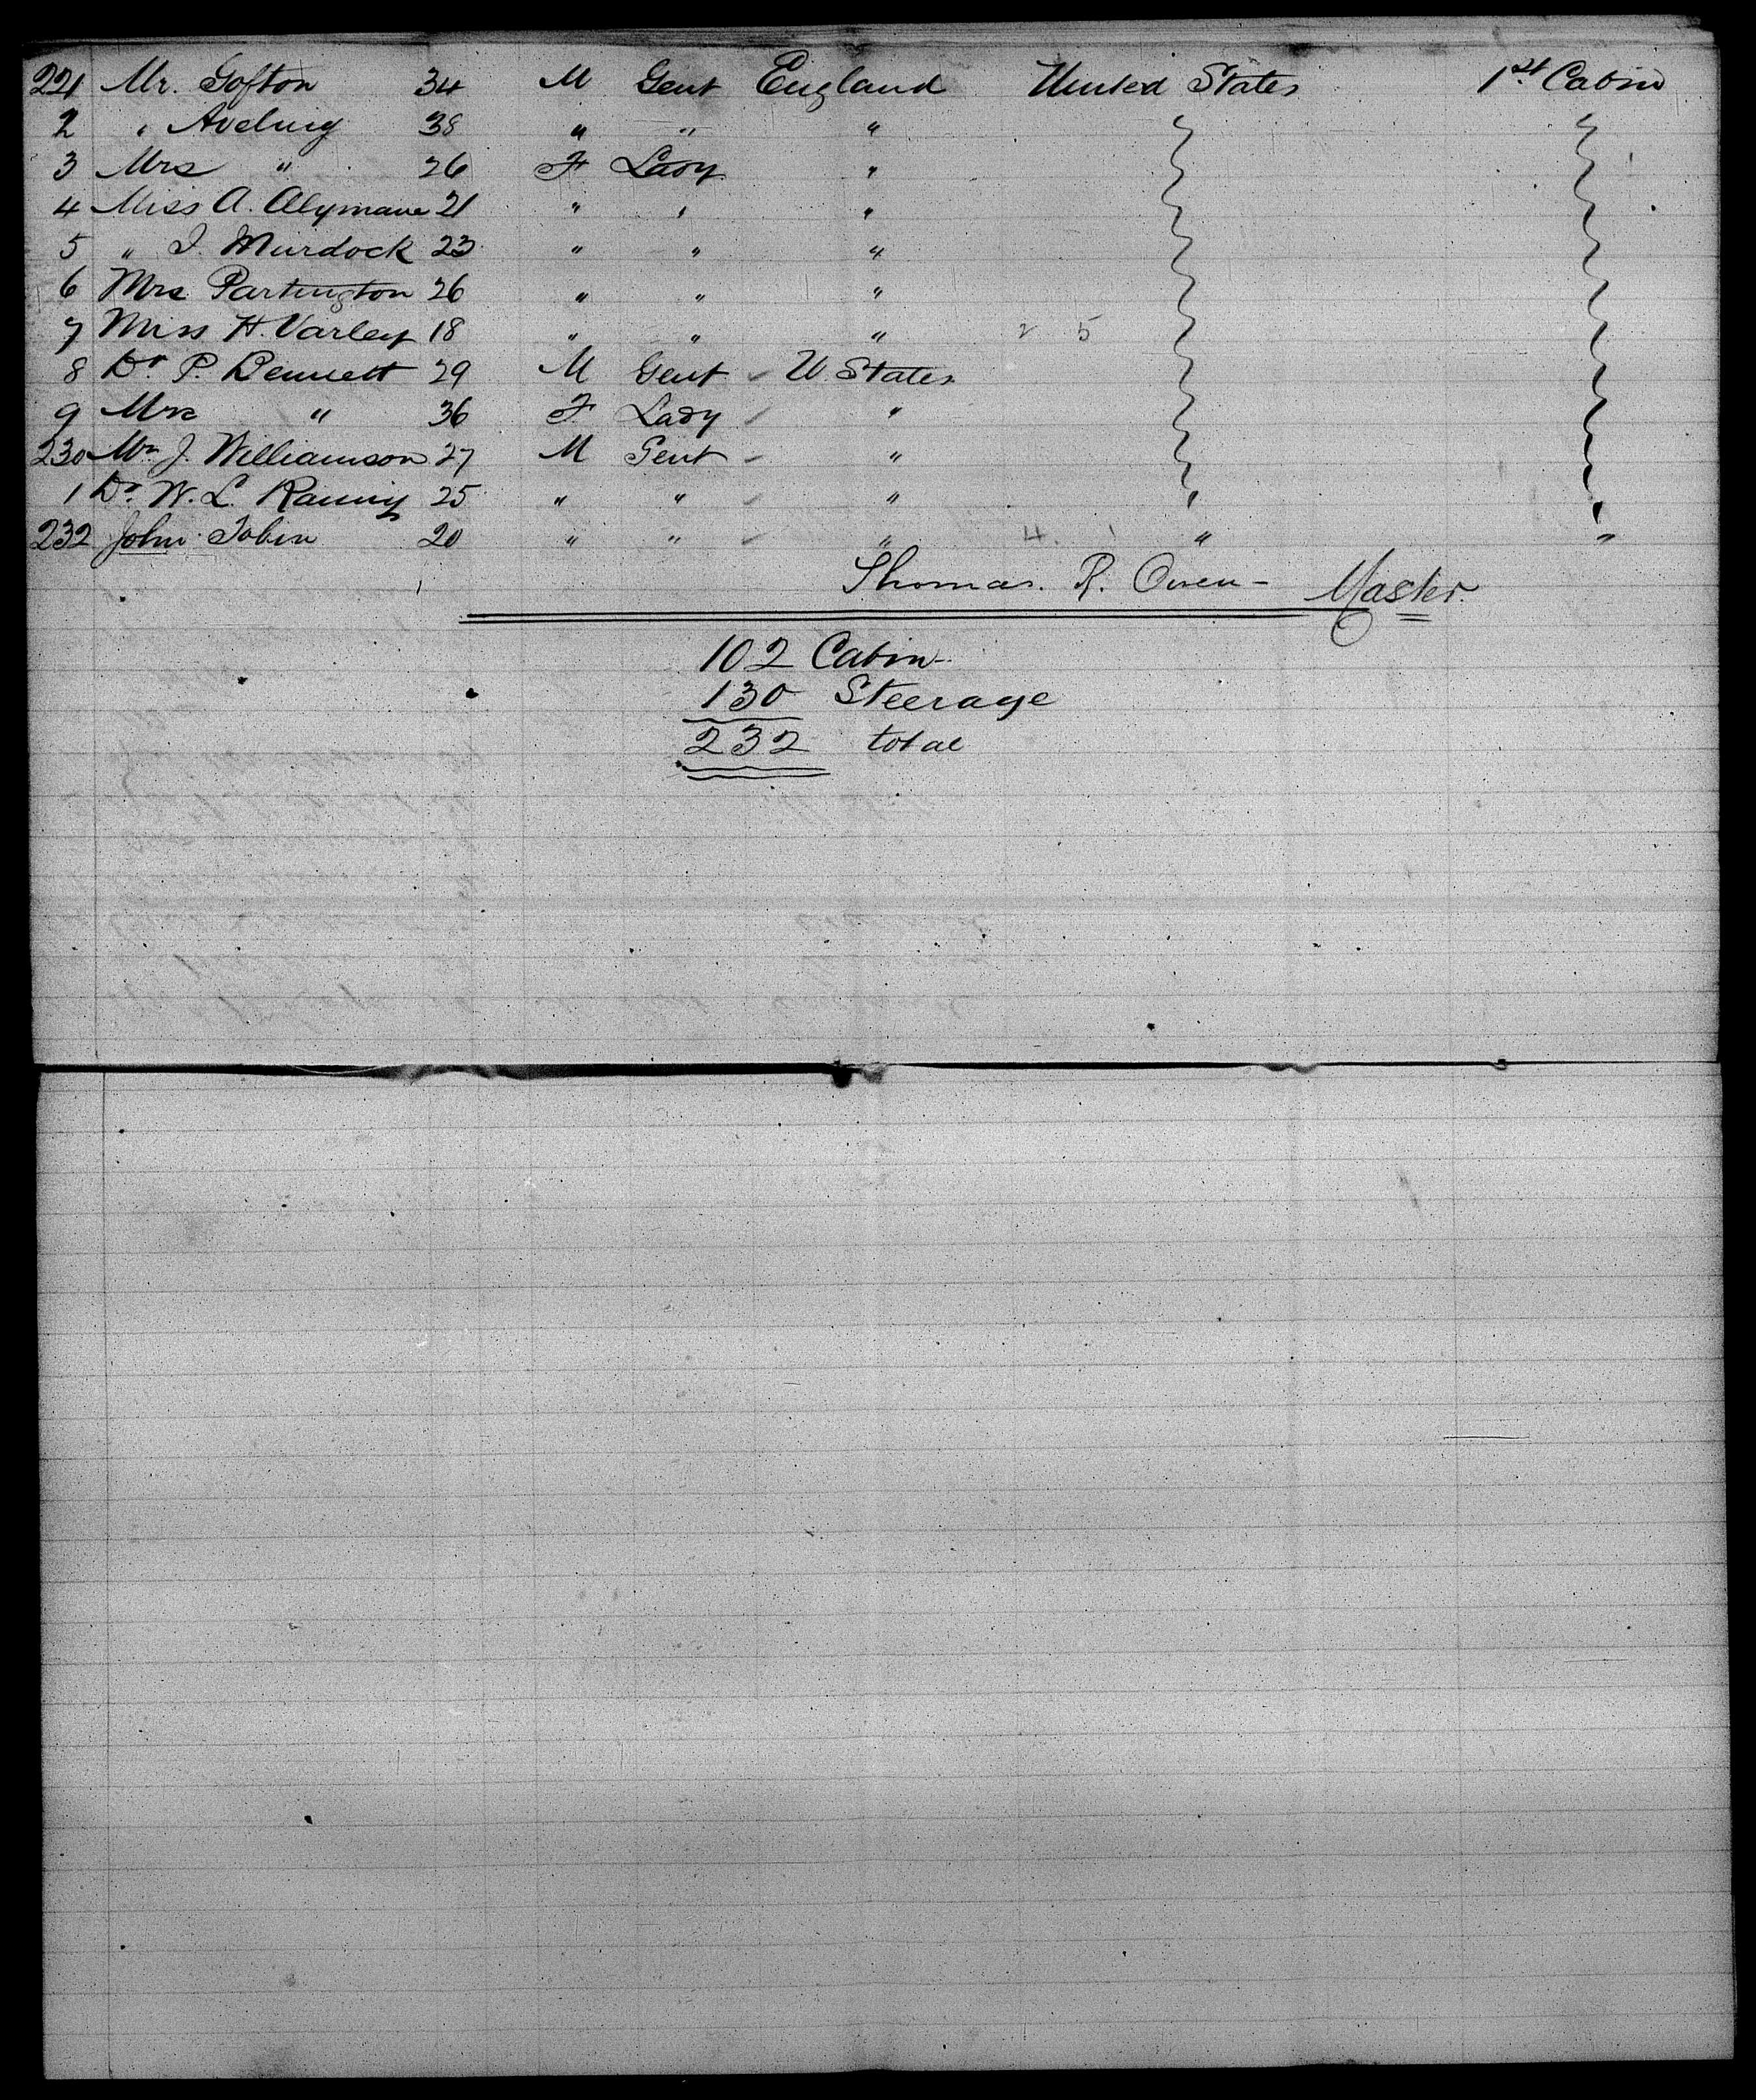 221 Mr. Gofton 34 M Gent England United States 1st Cabin
2 " Aveling 38 " " "
3 Mrs " 26 F Lady "
4 Miss A. 21 " " "
5 " I. Murdock 23 " " "
6 Mrs Partington 26 " " "
7 Miss H. Varley 18 " " " 2 5
8 Dr P. Bennett 29 M Gent U. States
9 Mrs " 36 F Lady "
230 Mr J. Williamson 27 M Gent "
1 Dr. W. L. 25 " " " " "
232 John Tobin 20 " " " 4. 1 " "
Thomas. R. Owen - Master.
102 Cabin
130 Steerage
232 total